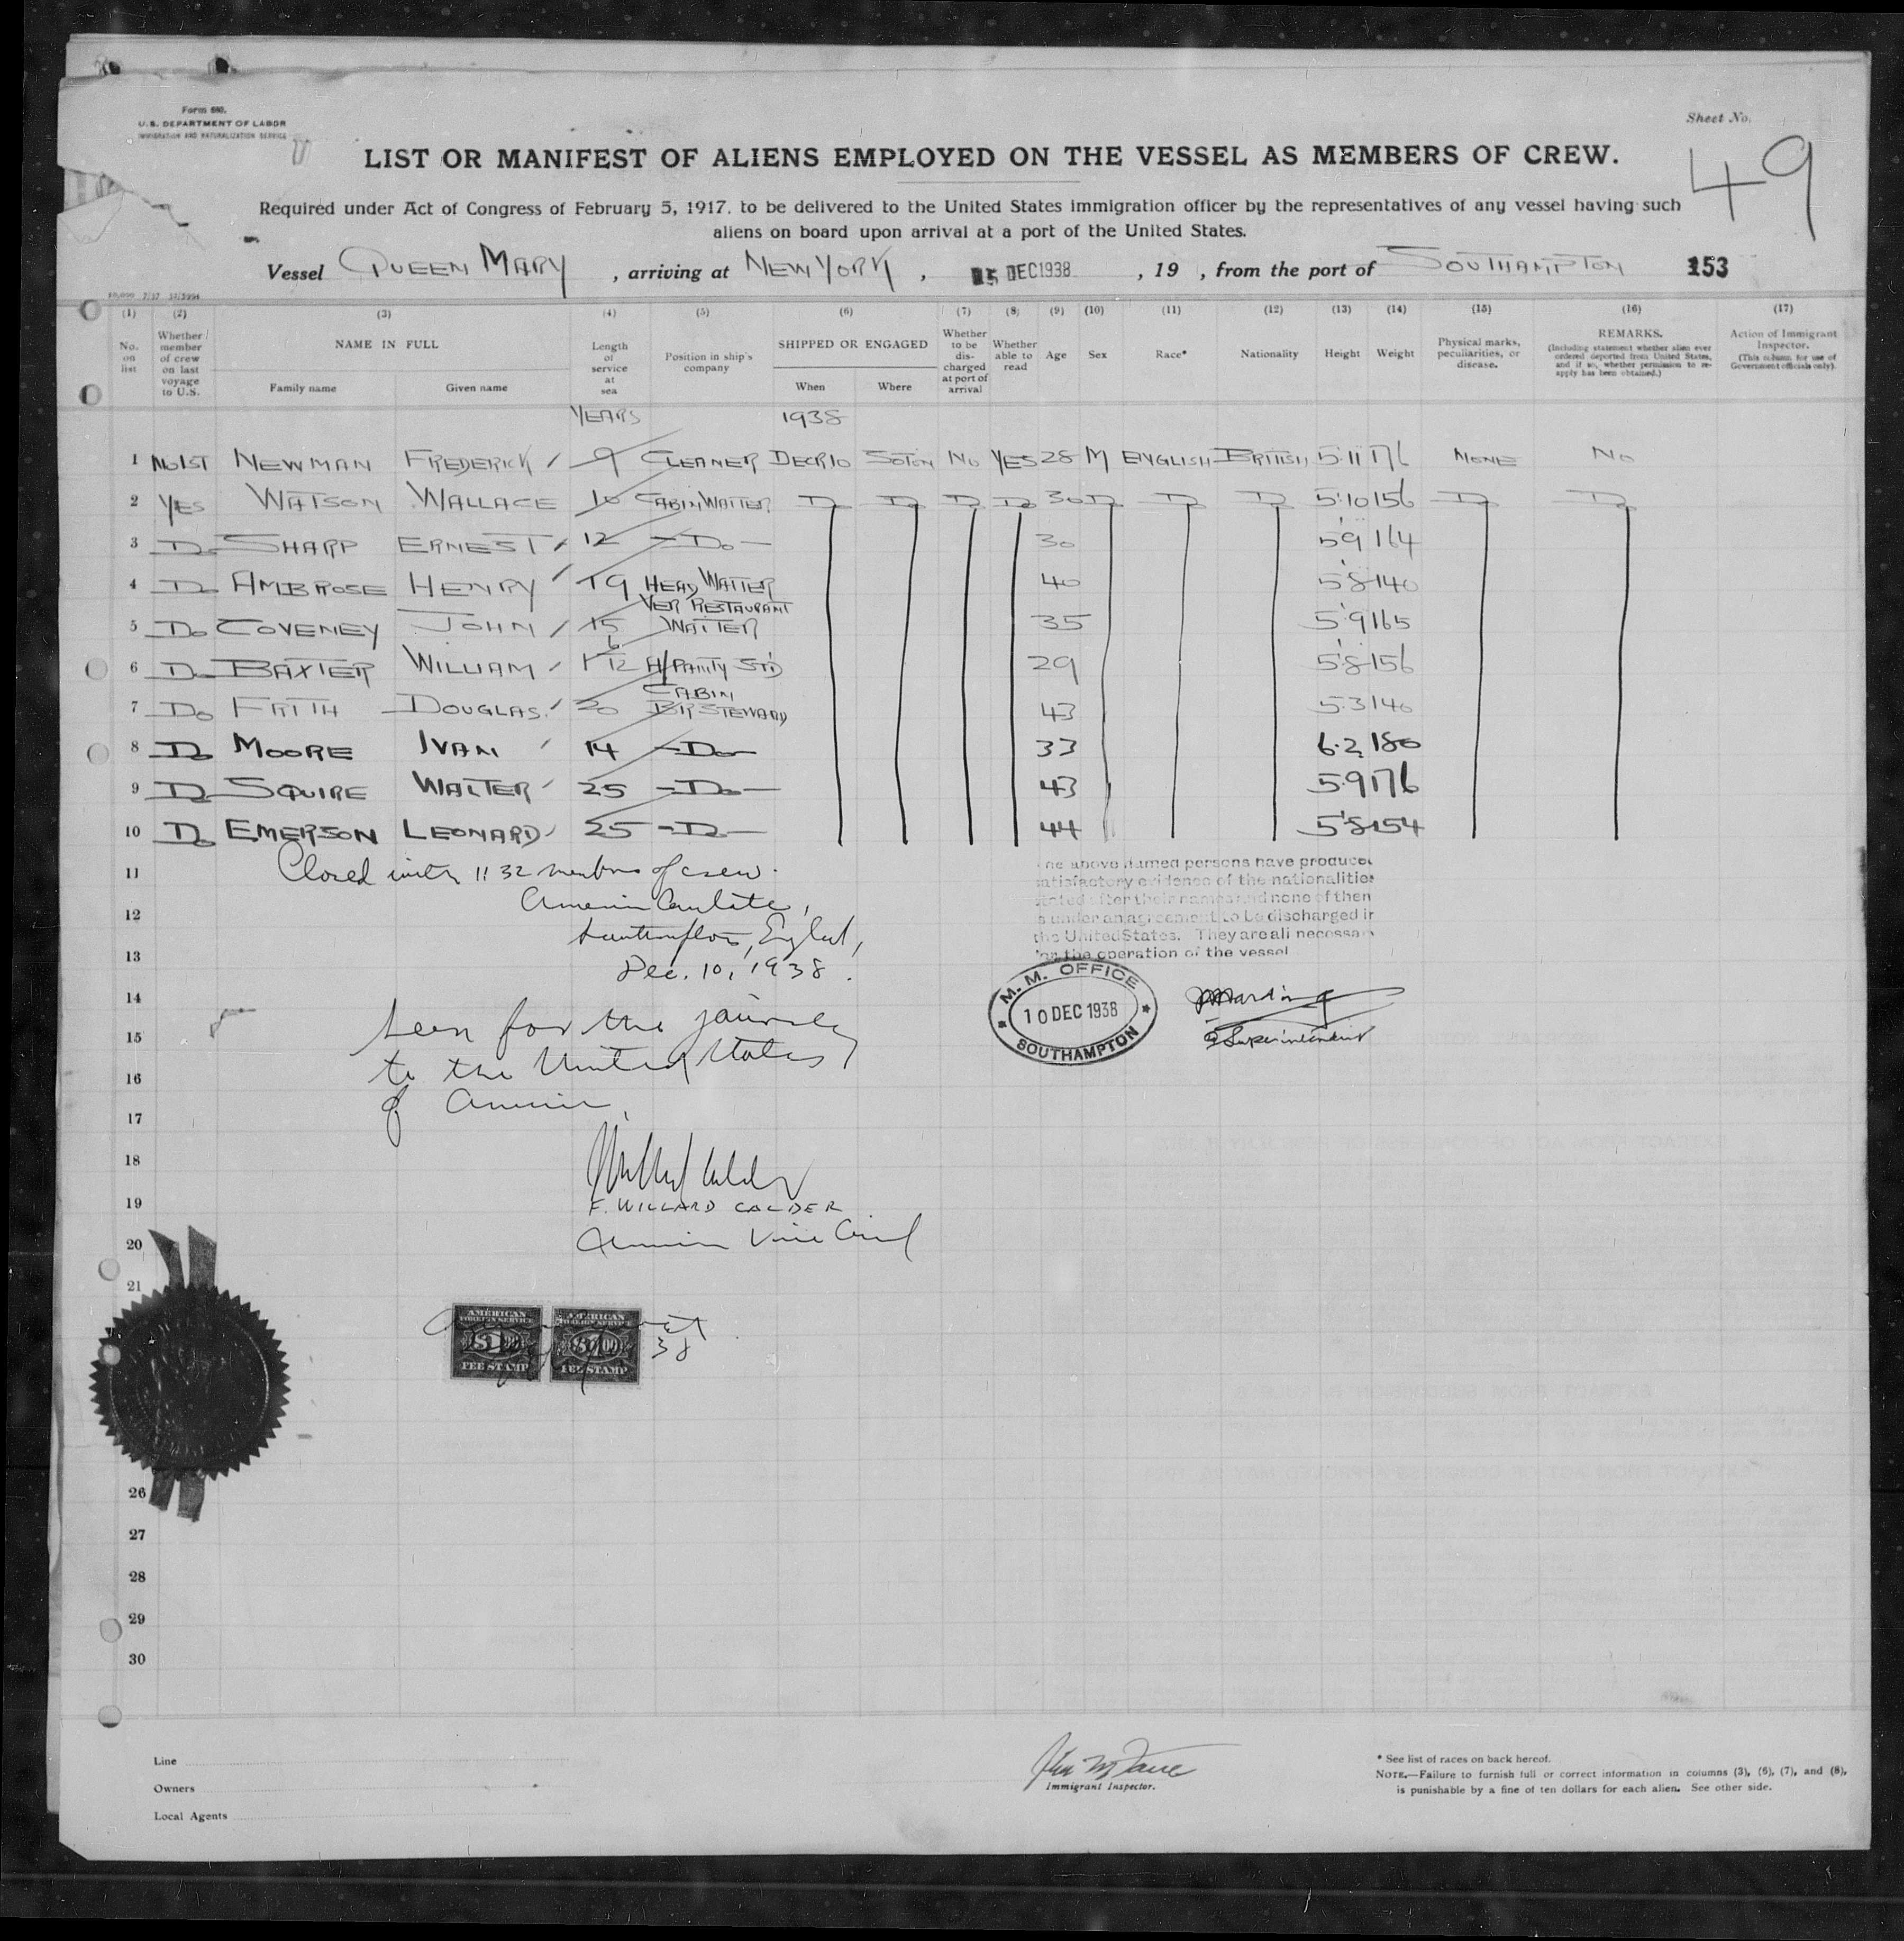 Form 680.
U.S. DEPARTMENT OF LABOR
IMMIGRATION AND NATURALIZATION SERVICE
Sheet No.
49
LIST OR MANIFEST OF ALIENS EMPLOYED ON THE VESSEL AS MEMBERS OF CREW.
Required under Act of Congress of February 5, 1917, to be delivered to the United States immigration officer by the representatives of any vessel having such
aliens on board upon arrival at a port of the United States.
Vessel QUEEN MARY, arriving at NEW YORK, 15 DEC 1938, 19 , from the port of SOUTHAMPTON 153
(1) (2) (3) (4) (5) (6) (7) (8) (9) (10) (11) (12) (13) (14) (15) (16) (17)
No. on list
Whether member of crew on last voyage to U.S.
NAME IN FULL
Family name Given name
Length of service at sea
Position in ship's company
SHIPPED OR ENGAGED
When Where
Whether to be discharged at port of arrival
Whether able to read
Age Sex Race* Nationality Height Weight
Physical marks, peculiarities, or disease.
REMARKS.
(Including statement whether alien ever ordered deported from United States, and if so, whether permission to reapply has been obtained.)
Action of Immigrant Inspector.
(This column for use of Government officials only).
YEARS 1938
1 NO 1ST NEWMAN FREDERICK 9 CLEANER DECR 10 SOTON NO YES 28 M ENGLISH BRITISH 5.11 176 NONE NO
2 YES WATSON WALLACE 10 CABIN WAITER Do Do Do Do 30 Do Do Do 5.10 156 Do Do
3 Do SHARP ERNEST 12 -Do- 30 5'9 164
4 Do AMBROSE HENRY 19 HEAD WAITER 40 5'8 140
5 Do COVENEY JOHN 15 VER RESTAURANT WAITER 35 5'9 165
6 Do BAXTER WILLIAM 1 6/12 A/PANTY STD 29 5'8 156
7 Do FRITH DOUGLAS 20 CABIN BR STEWARD 43 5.3 140
8 Do MOORE IVAN 14 -Do- 33 6.2 180
9 Do SQUIRE WALTER 25 -Do- 43 5.9 176
10 Do EMERSON LEONARD 25 -Do- 44 5'8 154
11 Closed with 1132 members of crew.
12 American Consulate,
13 Southampton, England,
Dec. 10, 1938.
The above named persons have produced
satisfactory evidence of the nationalities
stated after their names and none of them
is under an agreement to be discharged in
the United States. They are all necessary
for the operation of the vessel
M. M. OFFICE
10 DEC 1938
SOUTHAMPTON
Superintendent
14
15 Seen for the journey
16 to the United States
17 of America.
18
19 F. WILLARD CALDER
20 American Vice Consul
21
AMERICAN FOREIGN SERVICE
FEE STAMP
AMERICAN FOREIGN SERVICE
FEE STAMP
38
26
27
28
29
30
Line
Owners
Local Agents
Immigrant Inspector.
* See list of races on back hereof.
NOTE.—Failure to furnish full or correct information in columns (3), (6), (7), and (8),
is punishable by a fine of ten dollars for each alien. See other side.